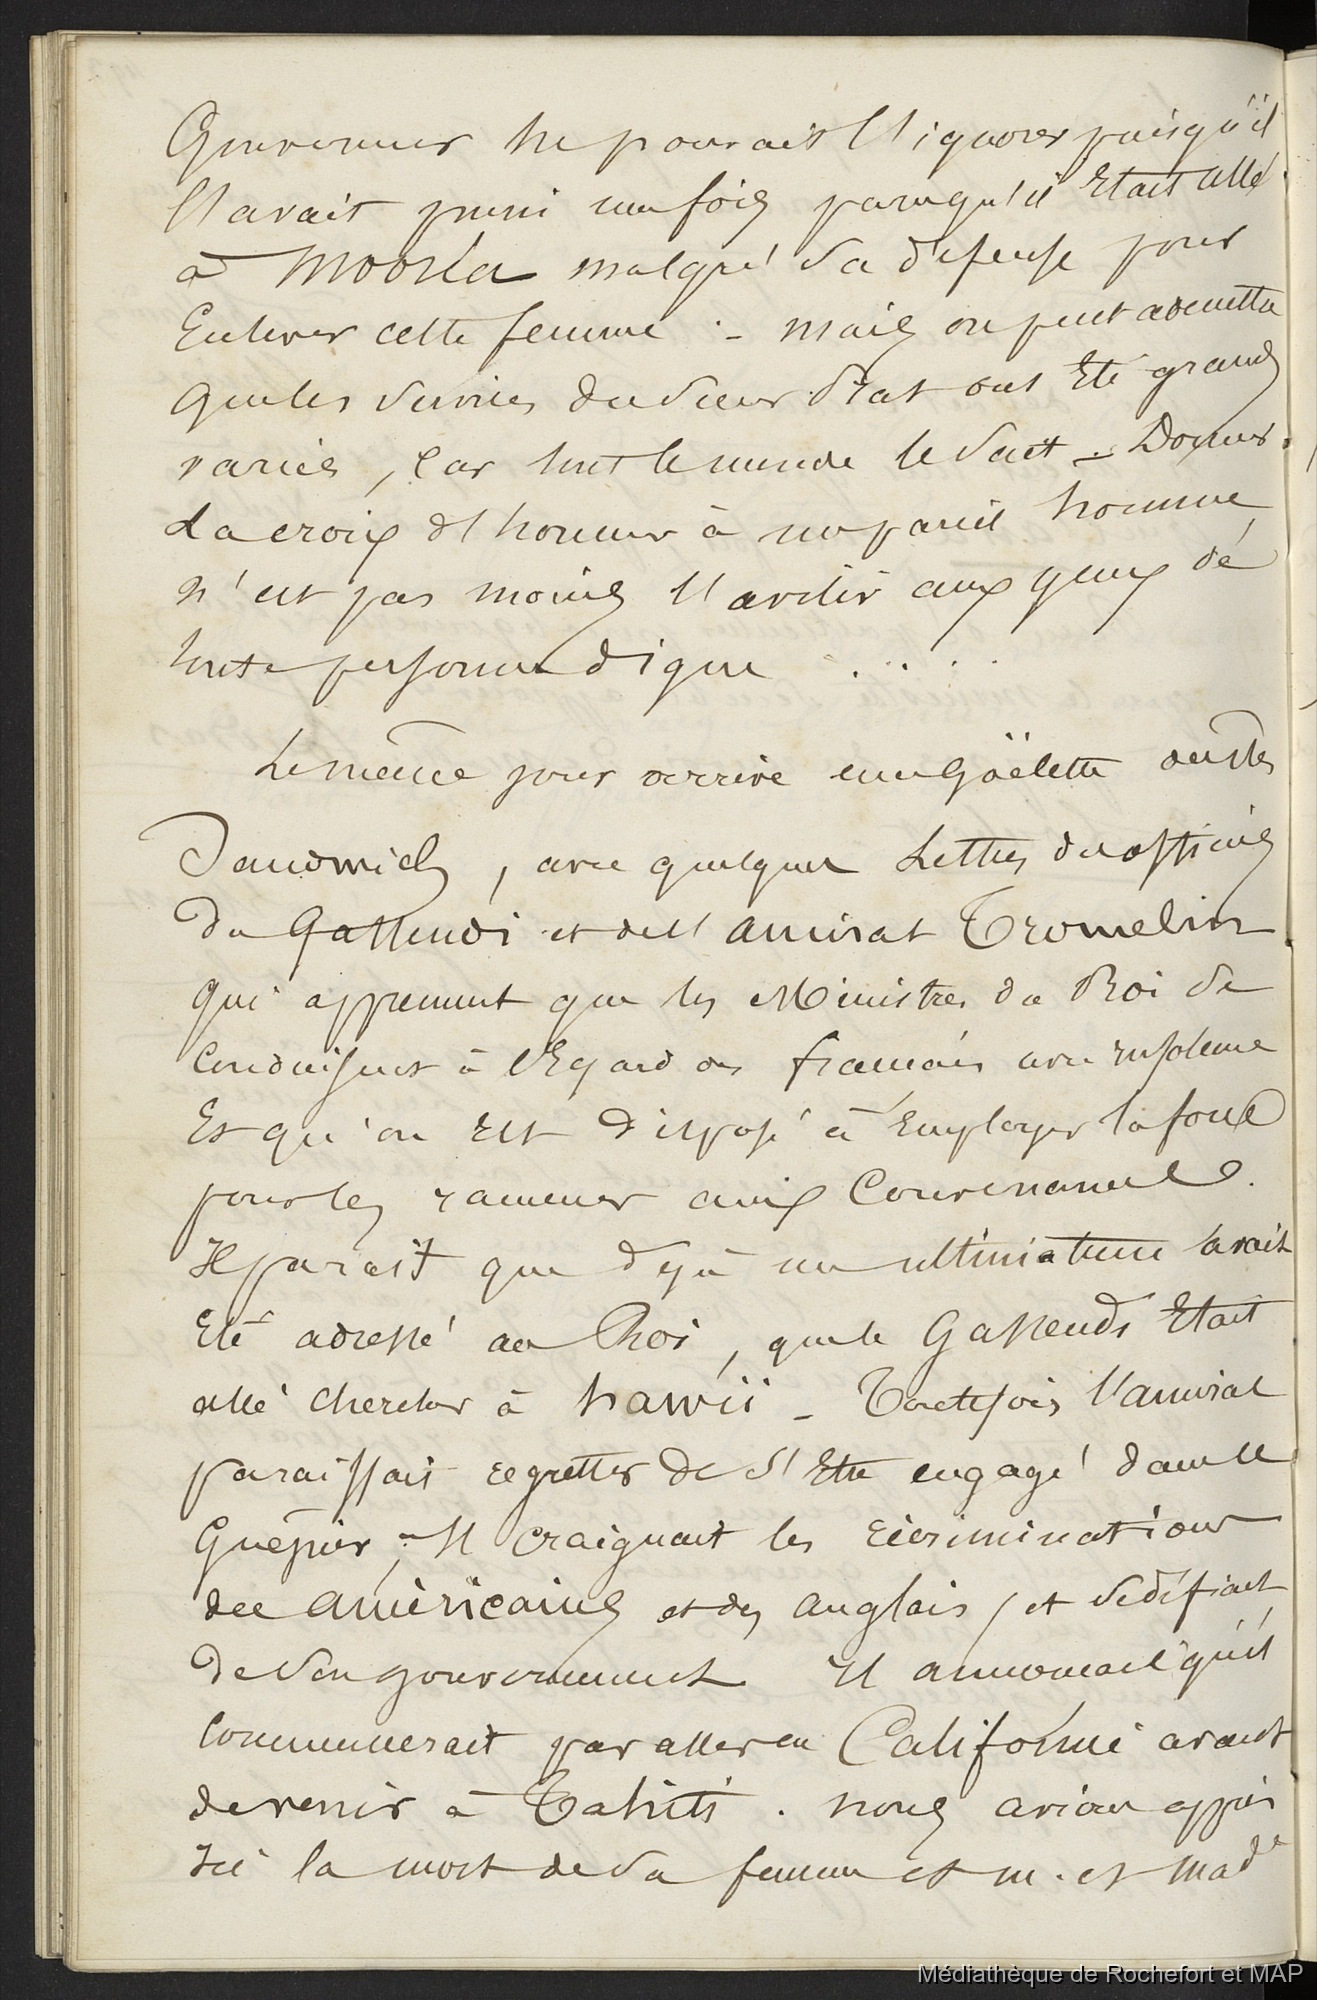 Gouverneur ne pouvait l'ignorer puisqu'il
l'avait puni une fois parcequ'il Etait allé
à Mooréa malgré sa défense pour
Enlever cette femme . - mais on peut admettre
que les services du Sieur ont été grands
variés, car tout le monde le sait - Donner
La croix d'honneur à un pareil homme
n'est pas moins l'avilir aux yeux de
toute personne digne . . . . .
Le même jour arrive une Goëlette des Iles
Sandwich, avec quelques Lettres des officiers
du Gassendi et de l'amiral Tromelin
qui apprennent que les Ministres du Roi se
Conduisent à l'Egard des français avec insolence
Et qu'on est disposé à Employer la force
pour les ramener aux Convenances.
Il parait que déjà un ultimatum avait
Eté adressé au Roi, que le Gassendi Etait
allé chercher à hawii - Toutefois l'amiral
paraissait regretter de s'Etre engagé dans ce
Guêpier ; Il craignait les récriminations
des américains et des anglais, et se défiait
De son gouvernement Il annoncait qu'il
Commencerait par aller en Californie avant
de venir à Tahiti . nous avions appris
Ici la mort de sa femme et m. et Made
Médiathèque de Rochefort et MAP